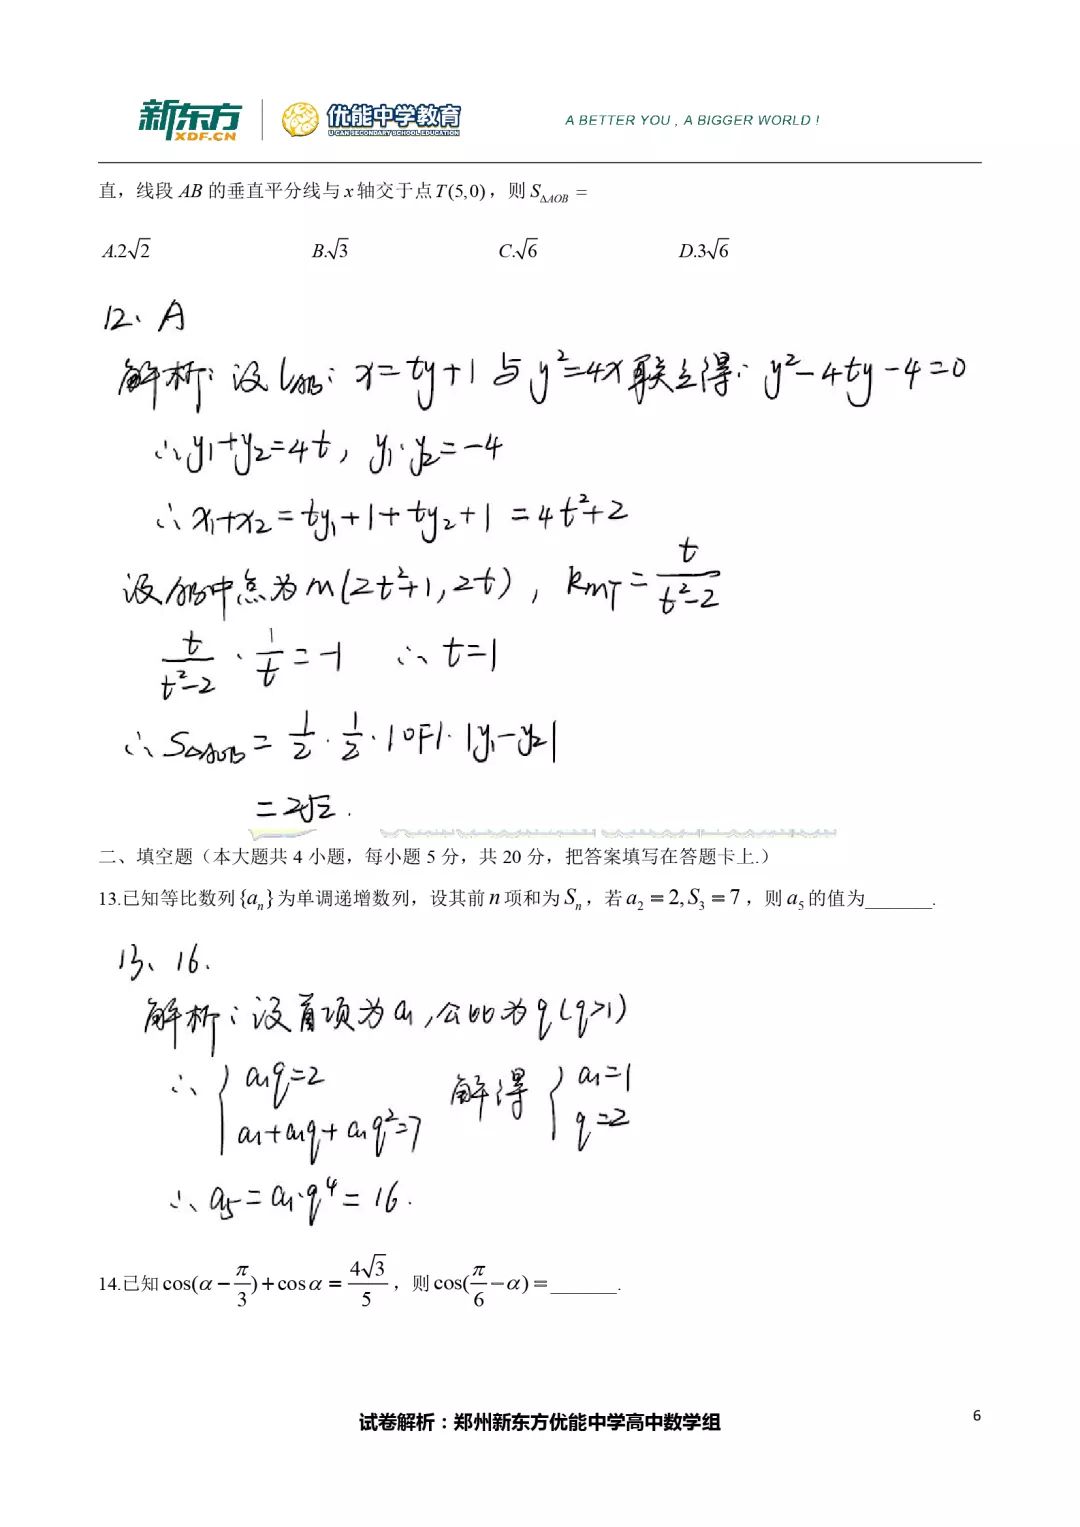 新东方 XDF.CN 优能中学教育 U CAN SECONDARY SCHOOL EDUCATION A BETTER YOU , A BIGGER WORLD !
直，线段 AB 的垂直平分线与 x 轴交于点 T(5,0)，则 S△AOB =
A.2√2 B.√3 C.√6 D.3√6
12、A
解析：设 lAB：x=ty+1 与 y²=4x 联立得：y²-4ty-4=0
∴y₁+y₂=4t，y₁·y₂=-4
∴x₁+x₂=ty₁+1+ty₂+1=4t²+2
设AB中点为M(2t²+1,2t)，kMT=t/(t²-2)
t/(t²-2)·1/t=-1 ∴t=1
∴S△AOB=1/2·1/2·|OF|·|y₁-y₂|
=2√2.
二、填空题（本大题共 4 小题，每小题 5 分，共 20 分，把答案填写在答题卡上.）
13.已知等比数列{aₙ}为单调递增数列，设其前 n 项和为 Sₙ，若 a₂ = 2, S₃ = 7，则 a₅ 的值为_______.
13、16.
解析：设首项为a₁,公比为q(q>1)
∴{a₁q=2 a₁+a₁q+a₁q²=7 解得 {a₁=1 q=2
∴a₅=a₁·q⁴=16.
14.已知 cos(α − π/3) + cos α = 4√3/5，则 cos(π/6 − α) = _______.
试卷解析：郑州新东方优能中学高中数学组
6